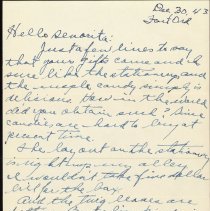 Dec. 30, 43
Fort Ord
Hello Senorita:
Just a few lines to say
that your gifts came and I
sure like the stationery and
the maple candy simply is
delicious. How in the world
did you obtain such? Since
candies are hard to buy at
present time.
The lay out on the stationery
is right up my alley
I wouldn't take five dollar
bill for the box.
And the twig leaves are